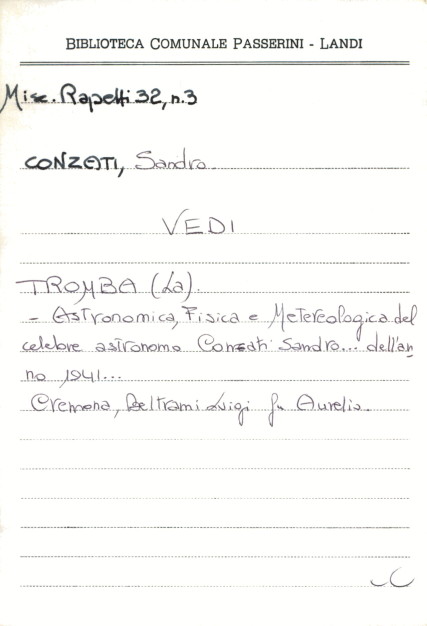 BIBLIOTECA COMUNALE PASSERINI - LANDI
Misc. Rapetti 32, n.3
CONZATI, Sandro.
VEDI
TROMBA (La).
- Astronomica, Fisica e Metereologica del
celebre astronomo Conzati Sandro... dell'an
no 1941...
Cremona, Beltrami Luigi fu Aurelio.